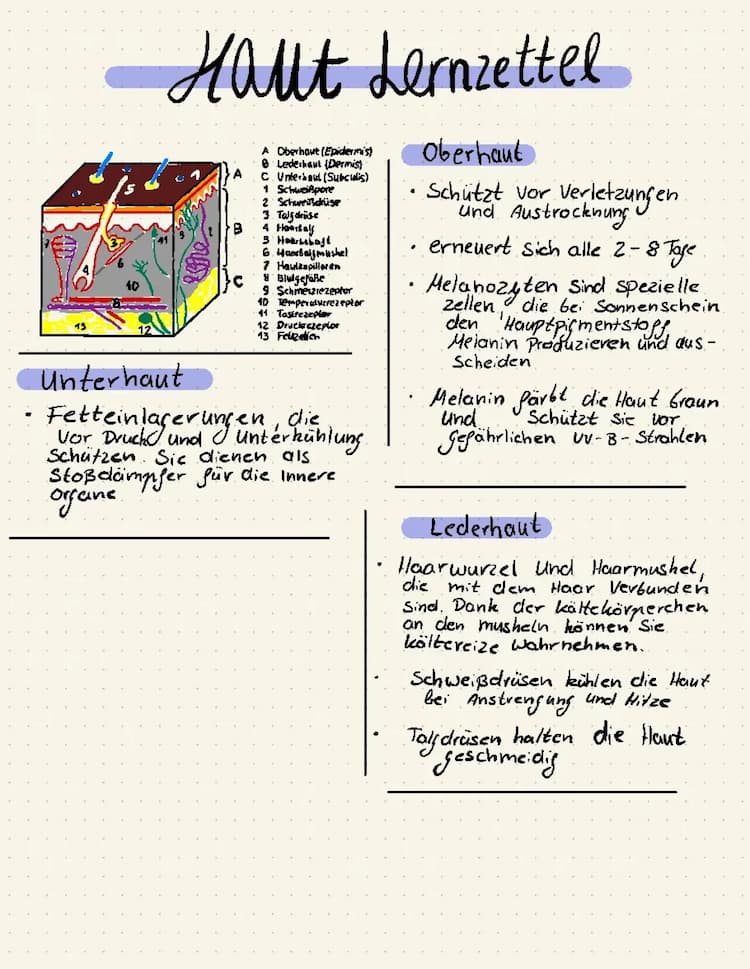 Haut Lernzettel
A Oberhaut (Epidermis)
B Lederhaut (Dermis)
C Unterhaut (Subcutis)
1 Schweißpore
2 Schweißdrüse
3 Talgdrüse
4 Haarbalg
5 Haarschaft
6 Haarbalgmuskel
7 Hautkapillaren
8 Blutgefäße
9 Schmerzrezeptor
10 Temperaturrezeptor
11 Tastrezeptor
12 Druckrezeptor
13 Fettzellen
A
B
C
1
5
3
4
6
7
11
9
2
10
8
13
12
Unterhaut
• Fetteinlagerungen, die
vor Druck und Unterkühlung
Schützen. Sie dienen als
Stoßdämpfer für die Innere
Organe
Oberhaut
• Schützt vor Verletzungen
und Austrocknung
• erneuert sich alle 2-8 Tage
• Melanozyten sind spezielle
zellen, die bei Sonnenschein
den Hauptpigmentstoff
Melanin Produzieren und aus-
Scheiden
• Melanin färbt die Haut braun
und Schützt Sie vor
gefährlichen UV-B-Strahlen
Lederhaut
• Haarwurzel und Haarmuskel,
die mit dem Haar Verbunden
Sind. Dank der kältekörperchen
an den muskeln können Sie
kältereize wahrnehmen.
• Schweißdrüsen kühlen die Haut
bei Anstrengung und Hitze
• Talgdrüsen halten die Haut
geschmeidig